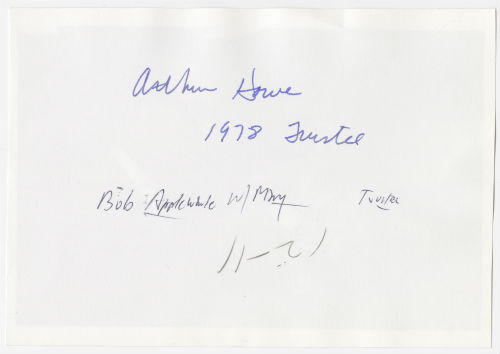 Arthur Howe
1978 Trustee
Bob Applewhite w/ Mary Trustee